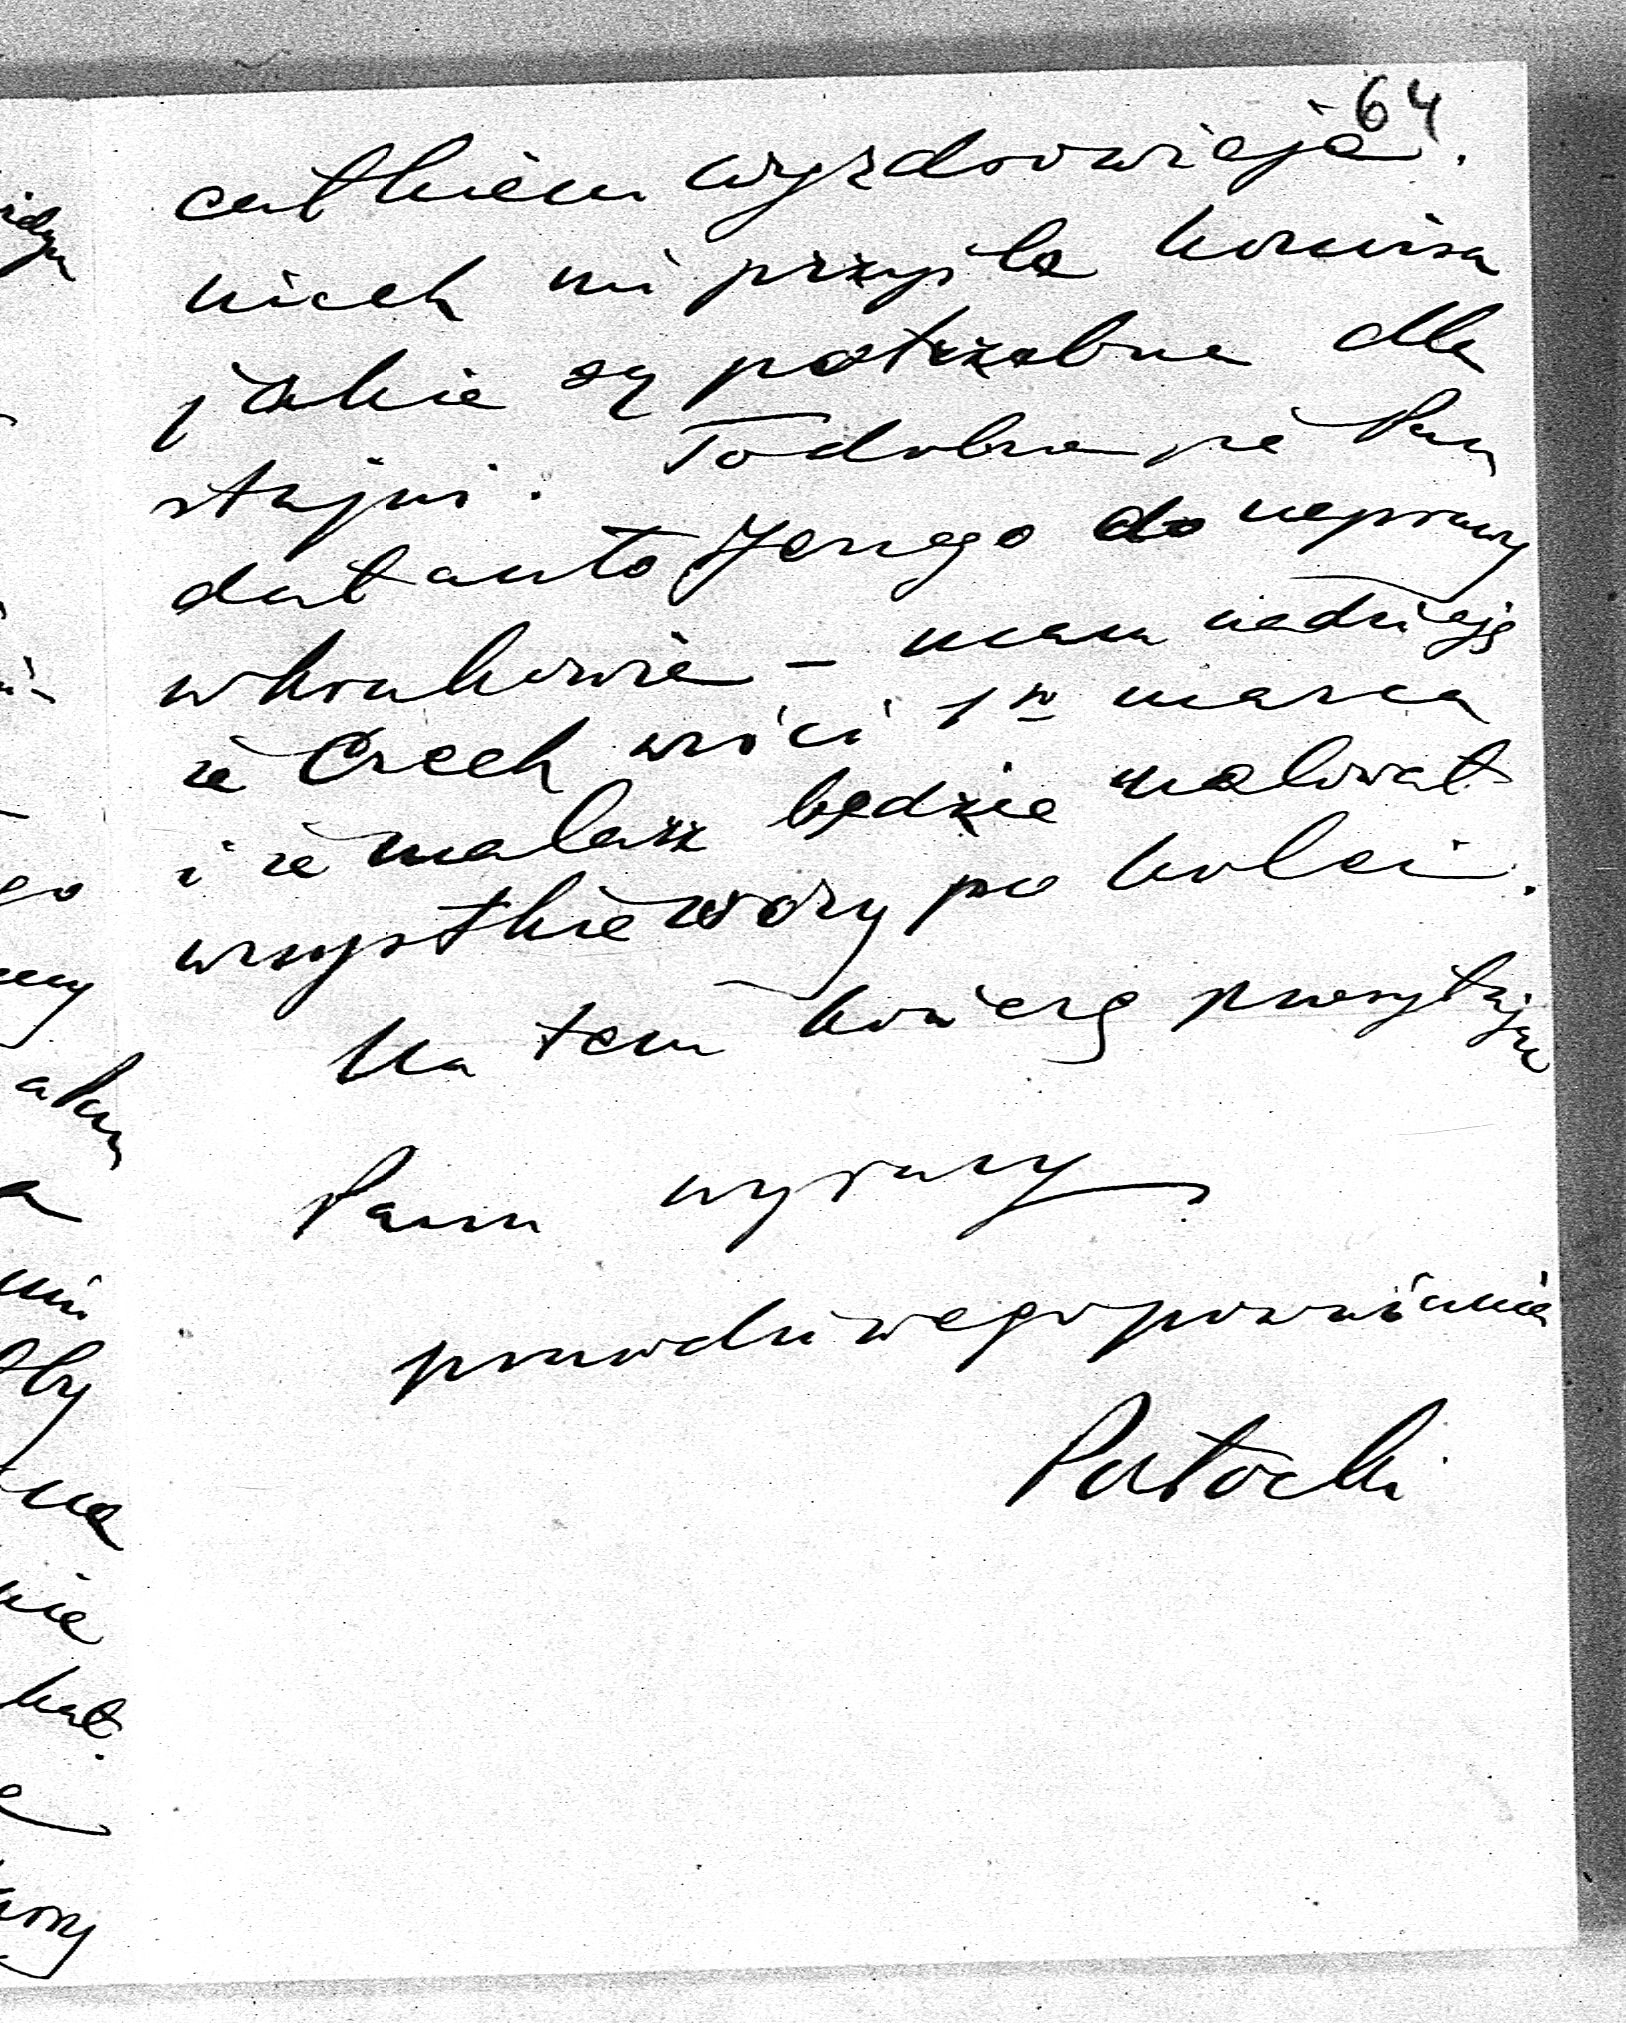 64
całkiem wyzdrowieje.
niech mi przyśle
jakie są potrzebne dla
stajni. To dobrze że Pan
dał auto Jerzego do naprawy
w Krakowie – mam nadzieję
że Czech wróci 1go marca
i że malarz będzie malował
wszystkie wozy po kolei.
Na tem kończę przesyłając
Panu wyrazy
prawdziwego poważania
Potocki